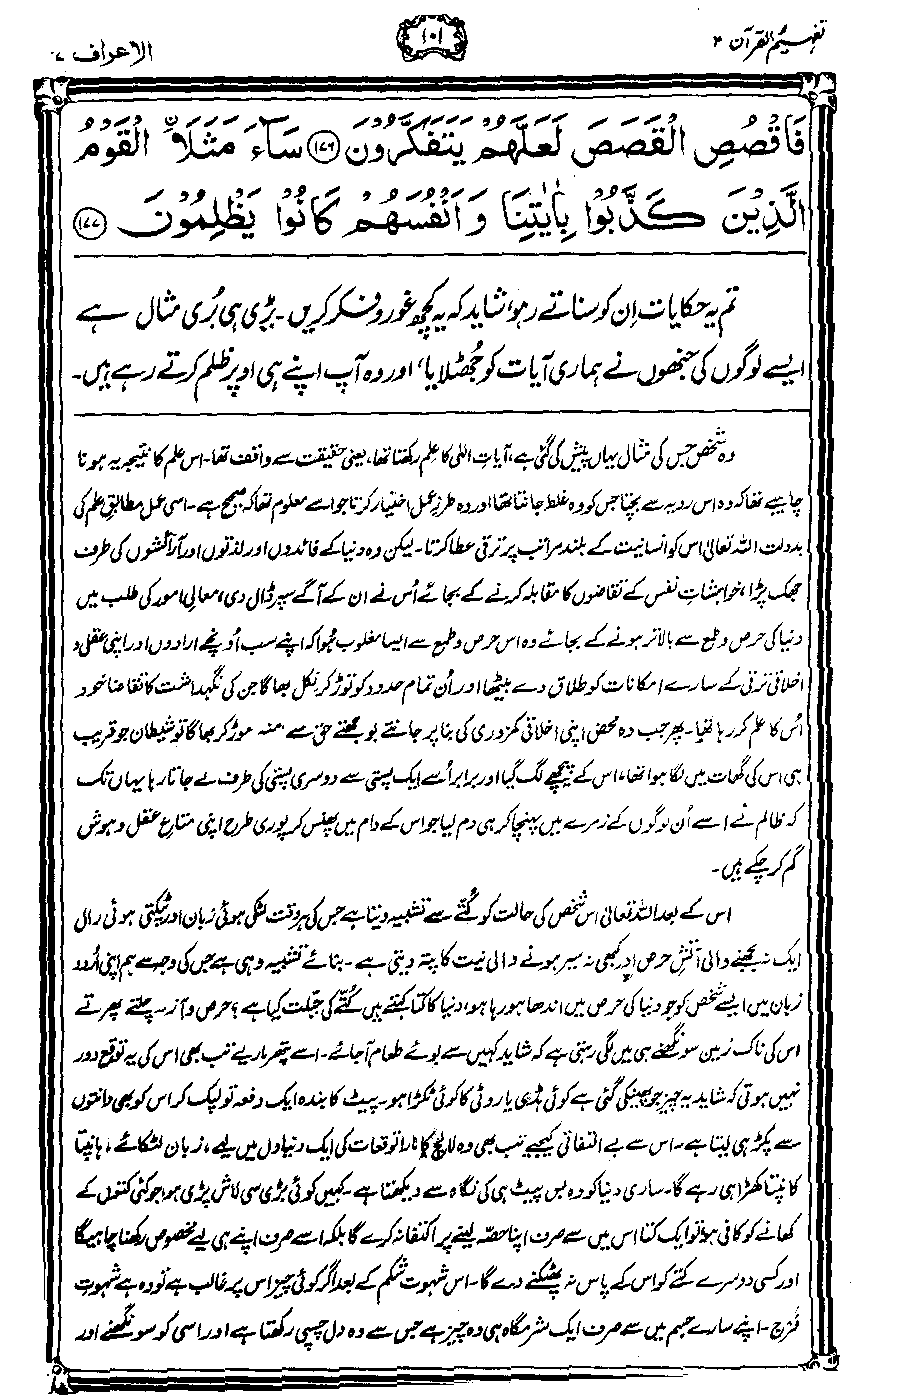 تفہیم القرآن ۲
۱۰۱
الاعراف ۷
فَاقْصُصِ الْقَصَصَ لَعَلَّهُمْ يَتَفَكَّرُوْنَ ﴿۱۷۶﴾ سَآءَ مَثَلَاً ۨ الْقَوْمُ
الَّذِيْنَ كَذَّبُوْا بِاٰيٰتِنَا وَ اَنْفُسَهُمْ كَانُوْا يَظْلِمُوْنَ ﴿۱۷۷﴾
تم یہ حکایات اِن کو سناتے رہو، شاید کہ یہ کچھ غور و فکر کریں۔ بڑی ہی بُری مثال ہے
ایسے لوگوں کی جنھوں نے ہماری آیات کو جُھٹلایا، اور وہ آپ اپنے ہی اوپر ظلم کرتے رہے ہیں۔
وہ شخص جس کی مثال یہاں پیش کی گئی ہے، آیاتِ الٰہی کا علم رکھتا تھا، یعنی حقیقت سے واقف تھا۔ اس علم کا نتیجہ یہ ہونا
چاہیے تھا کہ وہ اس رویہ سے بچتا جس کو وہ غلط جانتا تھا اور وہ طرزِ عمل اختیار کرتا جو اسے معلوم تھا کہ صحیح ہے۔ اسی عمل مطابقِ علم کی
بدولت اللہ تعالیٰ اس کو انسانیت کے بلند مراتب پر ترقی عطا کرتا۔ لیکن وہ دنیا کے فائدوں اور لذتوں اور آرائشوں کی طرف
جھک پڑا، خواہشاتِ نفس کے تقاضوں کا مقابلہ کرنے کے بجائے اُس نے ان کے آگے سپر ڈال دی، معالی امور کی طلب میں
دنیا کی حرص و طمع سے بالاتر ہونے کے بجائے وہ اس حرص و طمع سے ایسا مغلوب ہُوا کہ اپنے سب اُونچے ارادوں اور اپنی عقلی و
اخلاقی ترقی کے سارے امکانات کو طلاق دے بیٹھا اور اُن تمام حدود کو توڑ کر نکل بھاگا جن کی نگہداشت کا تقاضا خود
اُس کا علم کر رہا تھا۔ پھر جب وہ محض اپنی اخلاقی کمزوری کی بنا پر جانتے بوجھتے حق سے منہ موڑ کر بھاگا تو شیطان جو قریب
ہی اس کی گھات میں لگا ہوا تھا، اس کے پیچھے لگ گیا اور برابر اُسے ایک پستی سے دوسری پستی کی طرف لے جاتا رہا یہاں تک
کہ ظالم نے اسے اُن لوگوں کے زمرے میں پہنچا کر ہی دم لیا جو اس کے دام میں پھنس کر پوری طرح اپنی متاعِ عقل و ہوش
گم کر چکے ہیں۔
اس کے بعد اللہ تعالیٰ اس شخص کی حالت کو کُتّے سے تشبیہ دیتا ہے جس کی ہر وقت لٹکی ہوئی زبان اور ٹپکتی ہوئی رال
ایک نہ بجھنے والی آتشِ حرص اور کبھی نہ سیر ہونے والی نیت کا پتہ دیتی ہے۔ بنائے تشبیہ وہی ہے جس کی وجہ سے ہم اپنی اُردو
زبان میں ایسے شخص کو جو دنیا کی حرص میں اندھا ہو رہا ہو، دنیا کا کتا کہتے ہیں۔ کُتّے کی جبلت کیا ہے؟ حرص و آز۔ چلتے پھرتے
اس کی ناک زمین سونگھنے ہی میں لگی رہتی ہے کہ شاید کہیں سے بوئے طعام آ جائے۔ اسے پتھر ماریے تب بھی اس کی یہ توقع دور
نہیں ہوتی کہ شاید یہ چیز جو پھینکی گئی ہے کوئی ہڈی یا روٹی کا کوئی ٹکڑا ہو۔ پیٹ کا بندہ ایک دفعہ تو لپک کر اس کو بھی دانتوں
سے پکڑ ہی لیتا ہے۔ اس سے بے التفاتی کیجیے تب بھی وہ لالچ کا مارا توقعات کی ایک دنیا دل میں لیے، زبان لٹکائے، ہانپتا
کانپتا کھڑا ہی رہے گا۔ ساری دنیا کو وہ بس پیٹ ہی کی نگاہ سے دیکھتا ہے۔ کہیں کوئی بڑی سی لاش پڑی ہو، جو کئی کتوں کے
کھانے کو کافی ہو، تو ایک کتا اس میں سے صرف اپنا حصہ لینے پر اکتفا نہ کرے گا بلکہ اسے صرف اپنے ہی لیے مخصوص رکھنا چاہیگا
اور کسی دوسرے کتّے کو اس کے پاس نہ پھٹکنے دے گا۔ اس شہوتِ شکم کے بعد اگر کوئی چیز اس پر غالب ہے تو وہ ہے شہوتِ
فَرْج۔ اپنے سارے جسم میں سے صرف ایک شرمگاہ ہی وہ چیز ہے جس سے وہ دل چسپی رکھتا ہے اور اسی کو سونگھنے اور